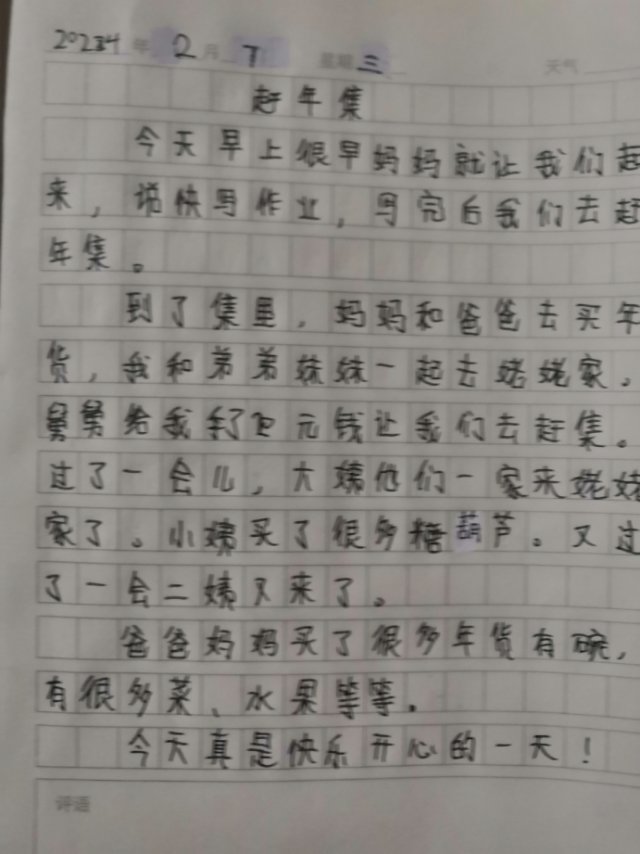 2024年2月7 星期三 天气
赶年集
今天早上很早妈妈就让我们起
来，说快写作业，写完后我们去赶
年集。
到了集里，妈妈和爸爸去买年
货，我和弟弟妹妹一起去姥姥家。
舅舅给我们元钱让我们去赶集。
过了一会儿，大姨他们一家来姥姥
家了。小姨买了很多糖葫芦。又过
了一会二姨又来了。
爸爸妈妈买了很多年货有碗，
有很多菜、水果等等。
今天真是快乐开心的一天！
评语